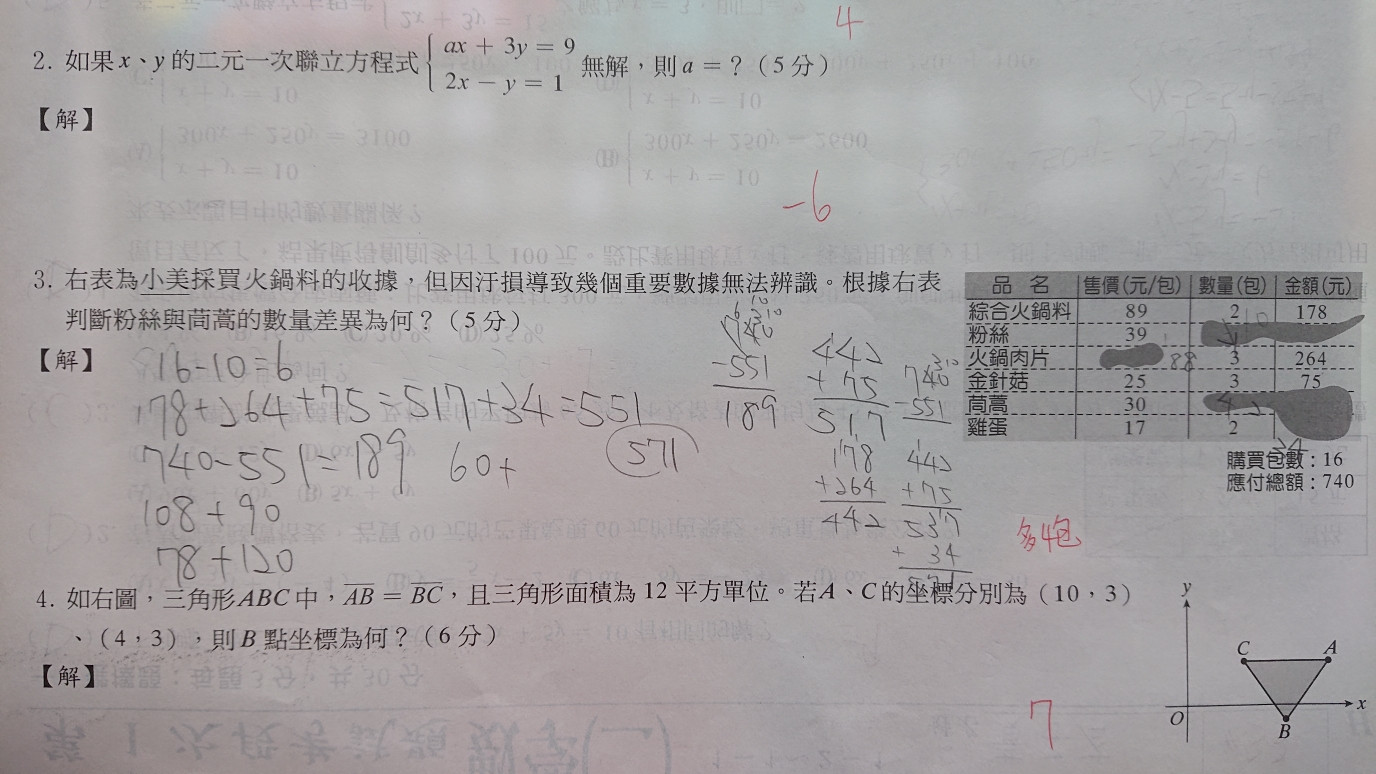 4
2. 如果 x、y 的二元一次聯立方程式 { ax + 3y = 9
2x − y = 1 無解，則 a = ？（5 分）
【解】
−6
3. 右表為小美採買火鍋料的收據，但因汙損導致幾個重要數據無法辨識。根據右表
判斷粉絲與茼蒿的數量差異為何？（5 分）
【解】
16-10=6
178+264+75=517+34=551
740-551=189 60+ 571
108+90
78+120
740
-551
189
442
+75
517
740
-551
178
+264
442
442
+75
537
+ 34
571
品 名 售價(元/包) 數量(包) 金額(元)
綜合火鍋料 89 2 178
粉絲 39
火鍋肉片 88 3 264
金針菇 25 3 75
茼蒿 30
雞蛋 17 2
34
購買包數：16
應付總額：740
多4包
4. 如右圖，三角形ABC中，AB = BC，且三角形面積為 12 平方單位。若A、C的坐標分別為（10，3）
、（4，3），則 B 點坐標為何？（6 分）
【解】
7
y
C A
O x
B